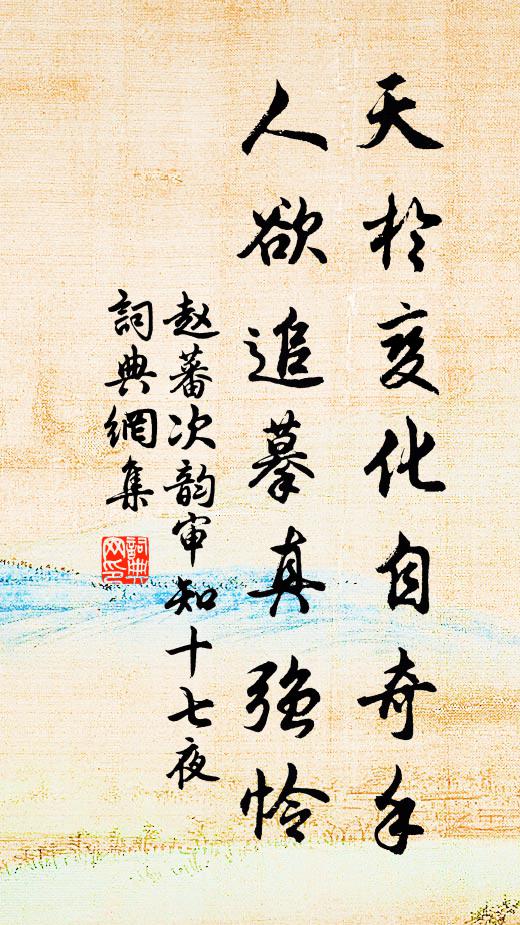 天於变化自奇手
人欲追摹真強怜
赵蕃次韵审知十七夜
詞典網集
詞典
网印